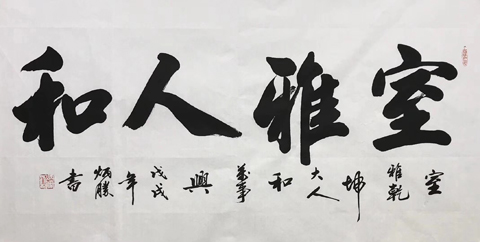 室雅人和
室雅乾坤大人和萬事興戊戌年炳勝書